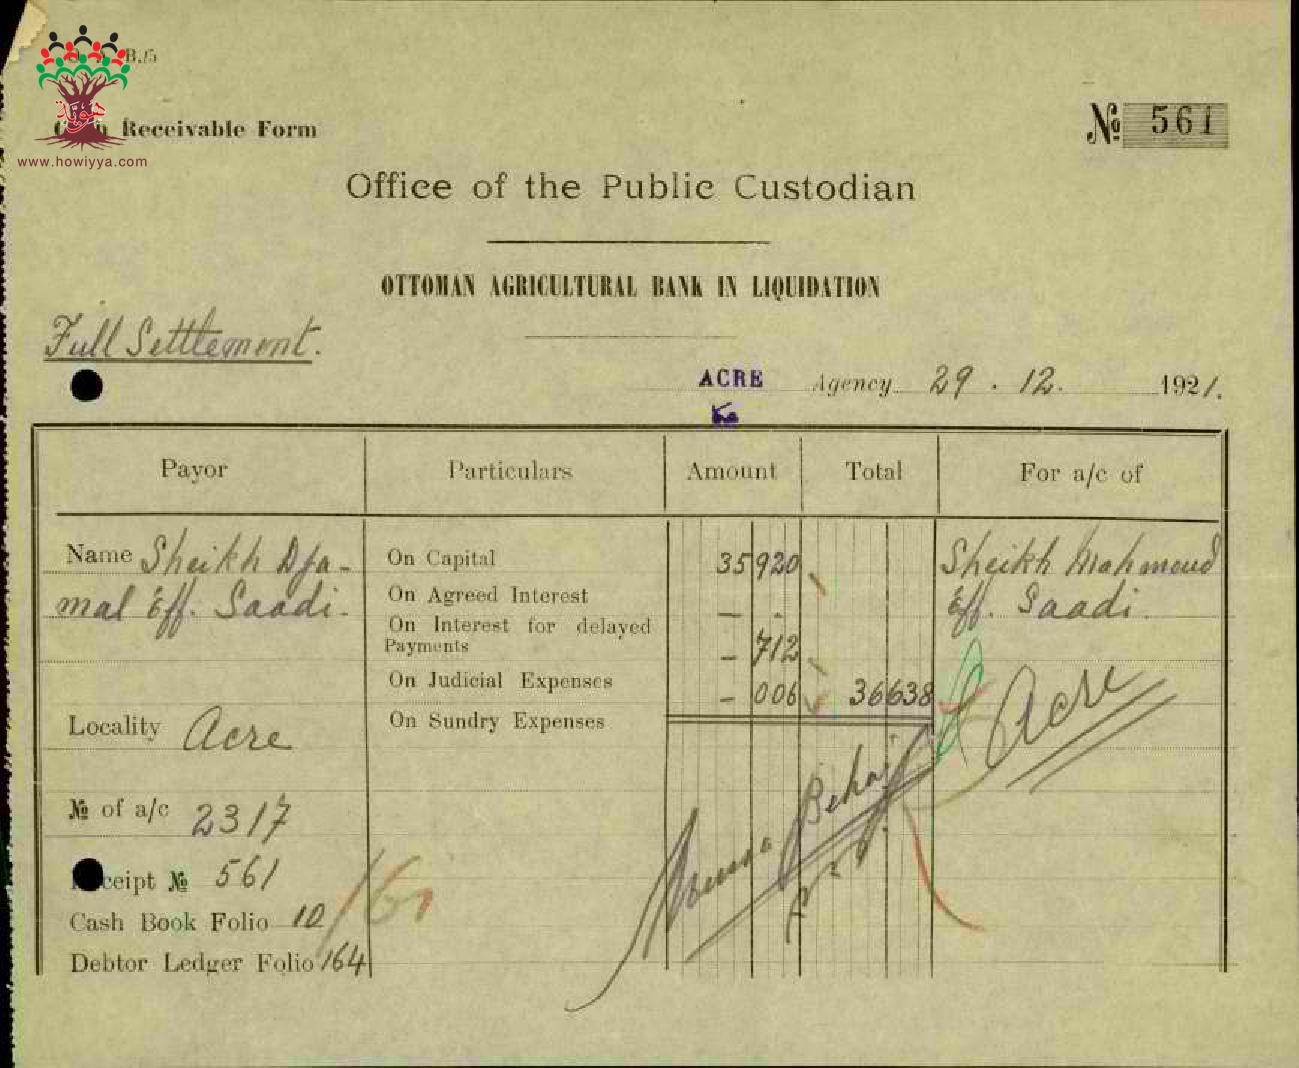 B./5
هوية
www.howiyya.com
Receivable Form
№ 561
Office of the Public Custodian
OTTOMAN AGRICULTURAL BANK IN LIQUIDATION
Full Settlement.
ACRE Agency 29 . 12. 1921.
Payor Particulars Amount Total For a/c of
Name Sheikh Dja-
mal Eff. Saadi.
Locality Acre
№ of a/c 2317
Receipt № 561
Cash Book Folio 10
Debtor Ledger Folio 164
On Capital 35 920
On Agreed Interest — .
On Interest for delayed
Payments — 712
On Judicial Expenses — 006 36 638
On Sundry Expenses
Sheikh Mahmoud
Eff. Saadi.
Acre